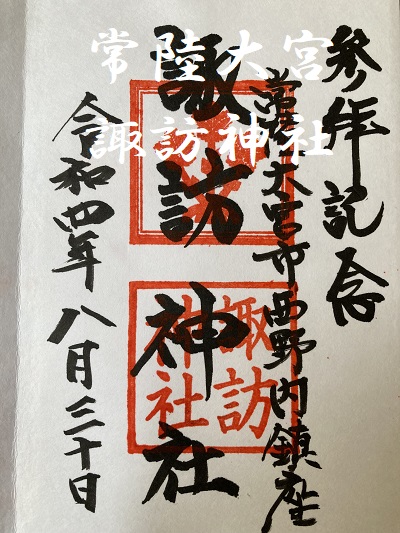 常陸大宮
諏訪神社
参拝記念
常陸大宮市西野内鎮座
諏訪神社
諏訪
神社
令和四年八月三十日